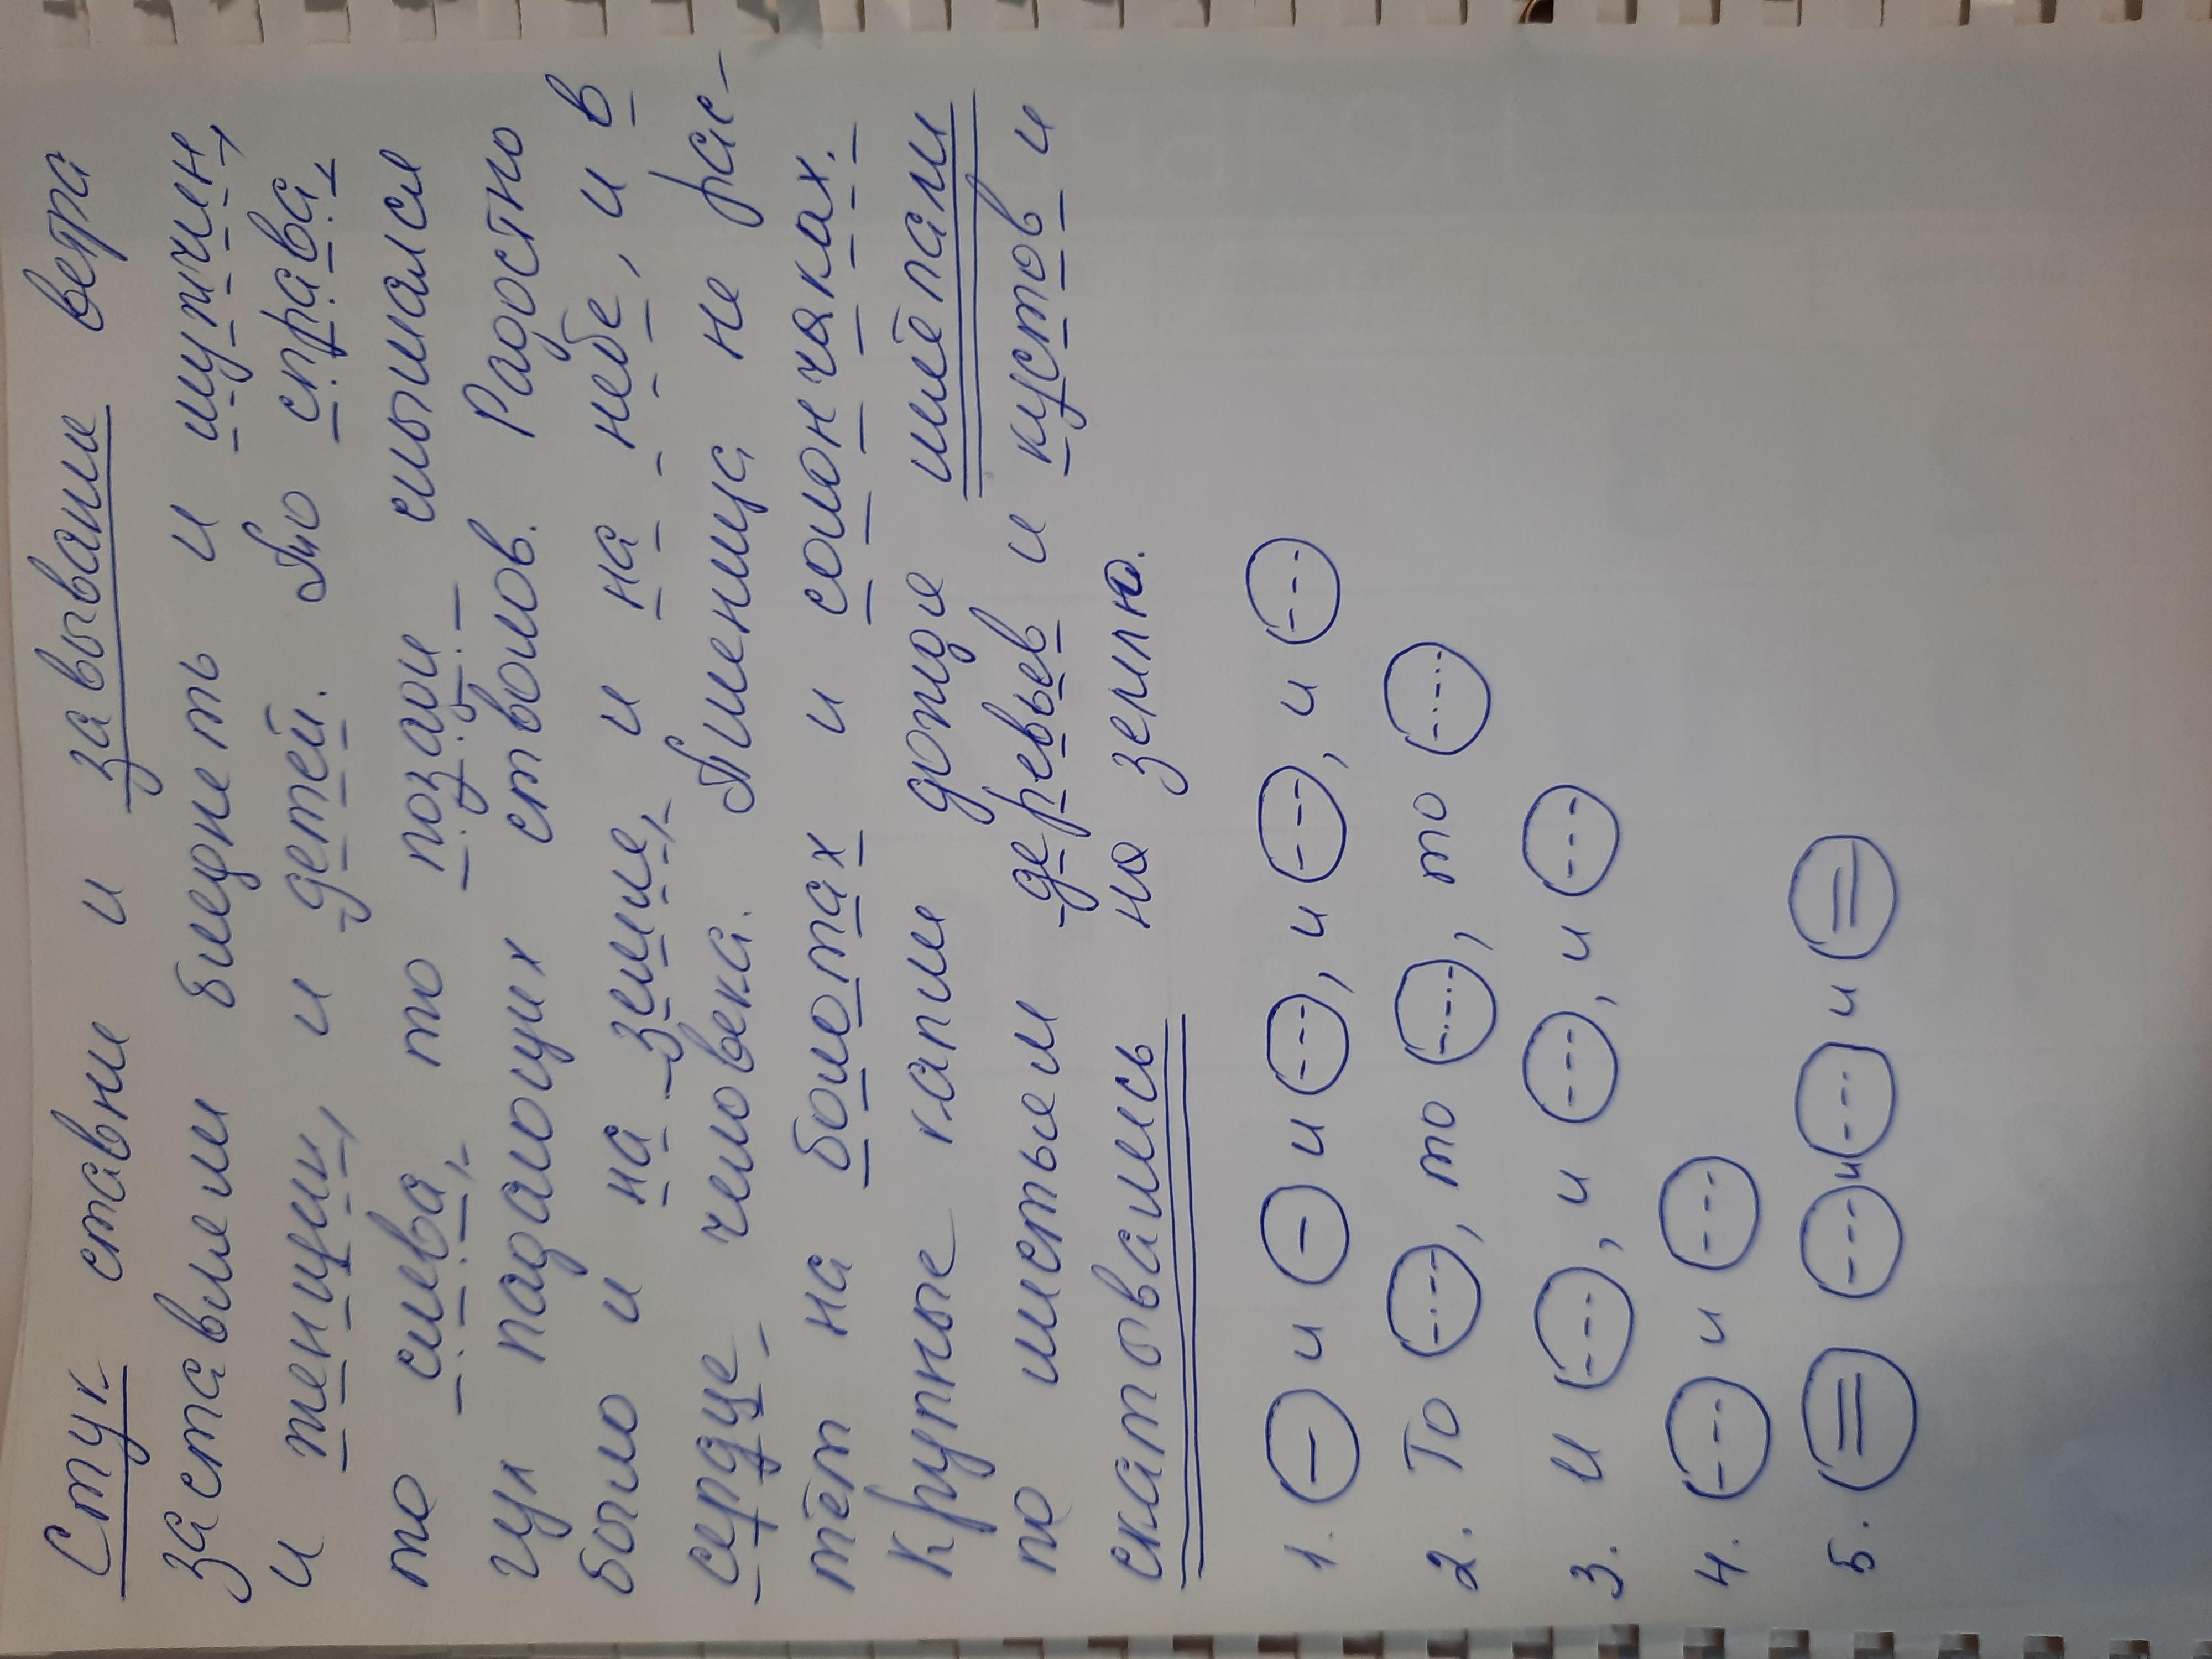 Стук ставни и завывание ветра
заставлял бледнеть и мужчин,
и женщин, и детей. То справа,
то слева, то позади слышался
гул падающих стволов. Радостно
было и на земле, и на небе, и в
сердце человека. Пшеница не рас-
тёт на болотах и солончаках.
Крупные капли дождя шлёпали
по листьям деревьев и кустов и
скатывались на землю.
1. — и — и ---, и ---, и ---
2. То -.-.-, то -.-.-, то -.-.-
3. И ---, и ---, и ---
4. --- и ---
5. = --- и --- и =